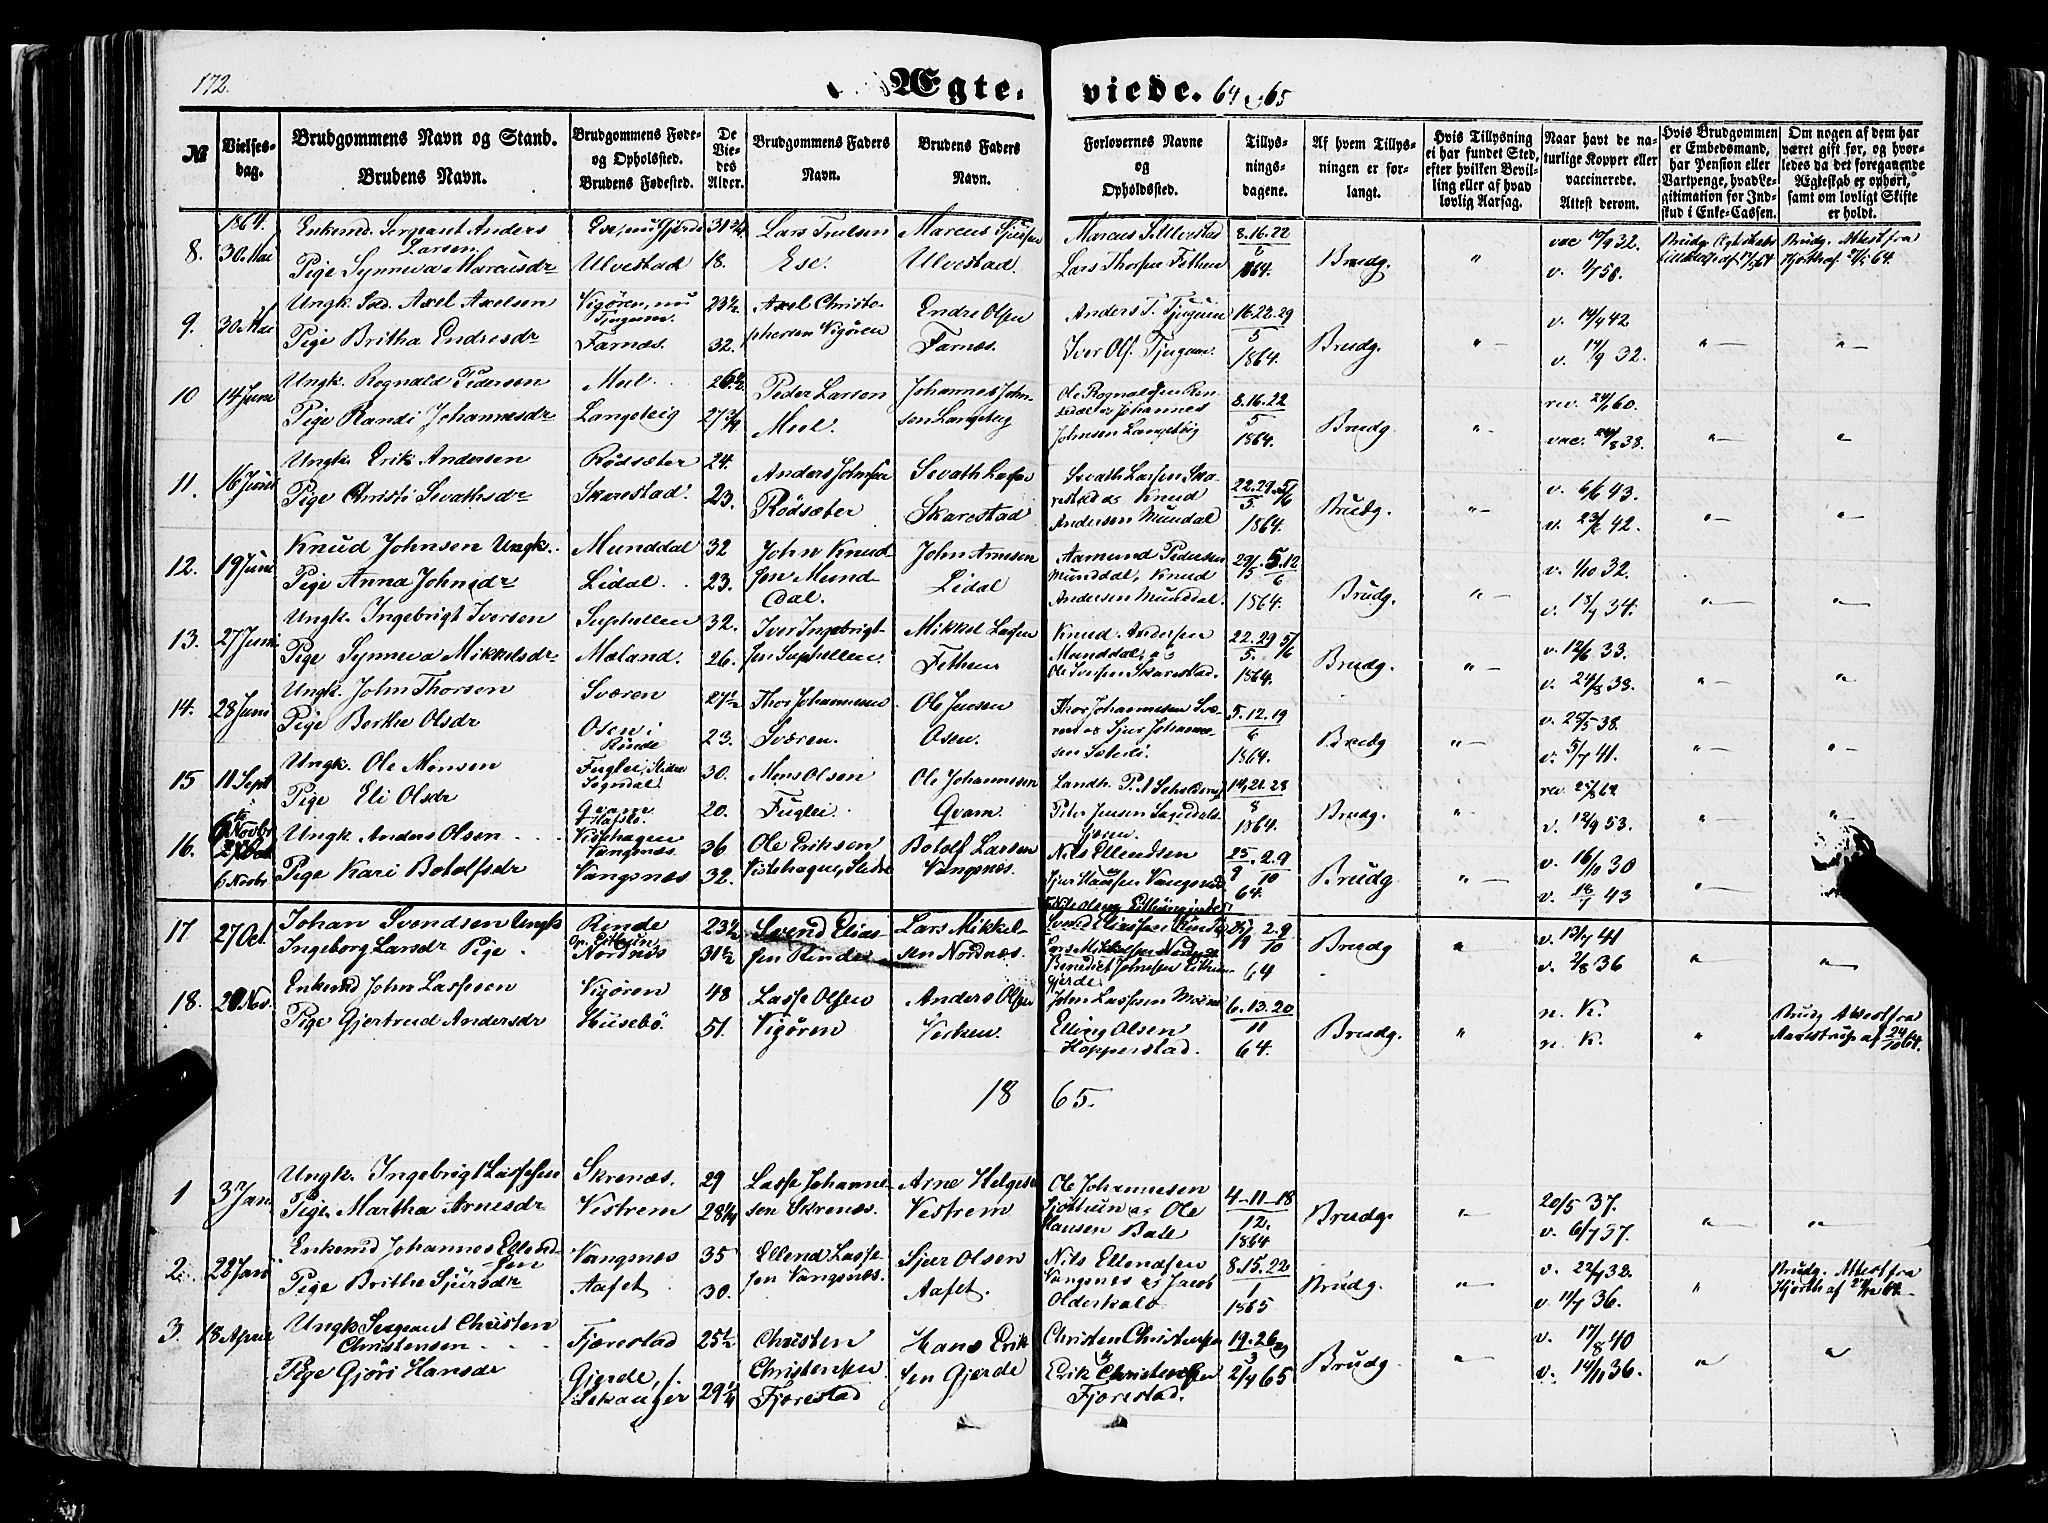 172.
Ægte- viede. 64 & 65
№
Vielses-
dag.
Brudgommens Navn og Stand.
Brudens Navn.
Brudgommens Føde-
og Opholdssted.
Brudens Fødested.
De
Vie-
des
Alder.
Brudgommens Faders
Navn.
Brudens Faders
Navn.
Forlovernes Navne
og
Opholdssted.
Tillys-
nings-
dagene.
Af hvem Tillys-
ningen er for-
langt.
Hvis Tillysning
ei har fundet Sted,
efter hvilken Bevil-
ling eller af hvad
lovlig Aarsag.
Naar havt de na-
turlige Kopper eller
vaccinerede.
Attest derom.
Hvis Brudgommen
er Embedsmand,
har Pension eller
Vartpenge, hvad Le-
gitimation for Ind-
skud i Enke-Cassen.
Om nogen af dem har
været gift før, og hvor-
ledes da det foregaaende
Ægteskab er ophørt,
samt om lovligt Skifte
er holdt.
1864.
8. 30 Mai
Enkemd. Sergeant Anders
Larsen
Pige Synneva Marcusdr
Ese, nu
Ulvestad
31 3/4
18.
Lars Truelsen
Ese.
Marcus
Ulvestad.
Marcus S. Ulvestad
Lars Thorsen Fethen
8.16.22
5
1864.
Brudg.
"
vac 19/9 32.
v. 50.
Brudg.
Brudg. Attest fra
Hjorth af 64.
9. 30 Mai
Ungk. Sold. Axel Axelsen
Pige Britha Endresdr
Vigören, nu
Tjugum.
Farnæs.
23 1/2
32.
Axel Christo-
phersen Vigören
Endre Olsen
Farnæs.
Anders T. Tjugum
Iver Ols. Tjugum.
16.22.29
5
1864.
Brudg.
"
v. 14/9 42
v. 14/9 32.
"
"
10 14 Juni
Ungk. Rognald Pedersen
Pige Randi Johannesdr
Meel.
Langeteig
26 1/2
27 3/4
Peder Larsen
Meel.
Johannes John-
sen Langeteig
Ole Rognaldsen
og Johannes
Johnsen Langeteig
8.16.22
5
1864.
Brudg.
"
rev. 60.
vac. 24/8 38.
"
"
11. 16 Juni
Ungk. Erik Andersen
Pige Christi Sevathsdr
Rödsæter
Skarestad.
24.
23.
Anders Johnsen
Rödsæter
Sevath Lassen
Skarestad
Sevath Lassen Ska-
restad og Knud
Andersen Mundal
22.29. 5/6
5
1864.
Brudg.
"
v. 6/6 43.
v. 23/6 42.
"
"
12. 19 Juni
Knud Johnsen Ungk.
Pige Anna Johnsdr
Munddal
Lidal.
32
23.
John Knud-
sen Mund-
dal.
John Arnesen
Lidal
Aamund Pedersen
Munddal, Knud
Andersen Munddal.
29/5. 5.12
6
1864.
Brudg.
"
v. 1/10 32.
v. 18/9 34.
"
"
13. 27 Juni
Ungk. Ingebrigt Iversen
Pige Synneva Mikkelsdr
Suphellen
Mæland.
32.
26.
Iver Ingebrigt-
sen Suphellen.
Mikkel Lassen
Fethen
Knud Andersen
Munddal, og
Ole Iversen Skarestad.
22.29 5/6
5.
1864.
Brudg.
"
v. 12/6 33.
v. 24/8 38.
"
"
14. 28 Juni
Ungk. John Thorsen
Pige Berthe Olsdr
Sværen
Osen i
Rinde
27 1/2
23.
Thor Johannesen
Sværen.
Ole Jensen
Osen.
Thor Johannesen Svæ-
ren og Sjur Johanne-
sen
5.12.19
6
1864.
Brudg
"
v. 25/5 38.
v. 5/7 41.
"
"
15 11 Sept
Ungk. Ole Monsen
Pige Eli Olsdr
Fuglei, Stedie
Sogndal
Qvam
Hafslo.
30.
20.
Mons Olsen
Fuglei.
Ole Johannesen
Qvam.
Landh. P. A.
Peter Jensen Sogndals-
fjøren.
14.21.28
8
1864.
Brudg.
"
rev. 25/8 62
v. 12/9 53.
"
"
6te Novbr
16. 27 Oct
6 Novbr
Ungk Anders Olsen
Pige Kari Botolfsdr
Vistehagen
Vangsnæs
Vangsnæs
36
32.
Ole Eriksen
Vistehagen, Stedie
Botolf Larsen
Vangsnæs.
Nils Ellendsen
Sjur Hansen Vangsnæs
25. 2.9
9 10
64.
Brudg.
"
v. 16/10 30
v. 18/7 43
"
17. 27 Oct.
Johan Svendsen Ungk
Ingeborg Larsdr Pige
Rinde
Nordnæs
23 1/2
31 1/2
Svend Elias-
sen Rinde
Lars Mikkel-
sen Nordnæs.
Svend Eliassen Rinde
Lars Mikkelsen Nordnæs
Benedict Johnsen
gjerde.
2.9
10
64
Brudg
"
v. 13/7 41
v. 2/8 36
"
"
18. 20 Nov.
Enkemd John Lassesen
Pige Gjertrud Andersdr
Vigören
Husebö.
48
51.
Lasse Olsen
Vigören
Anders Olsen
Verken.
John Lassesen
Elling Olsen
Hopperstad.
6.13.20
11
64.
Brudg.
"
n. K.
n. K.
"
Brudg. Attest fra
af 24/10 64.
18 65.
1 3 Jan.
Ungk. Ingebrigt Lassesen
Pige Martha Arnesdr
Skrenæs.
Vestrem
29
28 1/4
Lasse Johanne-
sen Skrenæs.
Arne Helgesen
Vestrem
Ole Johannesen
Sjöttun og Ole
Hansen Bale
4-11-18
12.
1864
Brudg.
"
20/5 37.
v. 6/7 37.
"
"
2. 22 Jan
Enkemd Johannes Ellend-
sen
Pige Brithe Sjursdr
Vangsnæs
Aafet
35
30.
Ellend Lasse-
sen Vangsnæs.
Sjur Olsen
Aafet.
Nils Ellendsen
Vangsnæs og Jacob
8.15.22
1
1865
Brudg.
"
v. 22/7 32.
v. 11/7 36.
"
Brudg. Attest fra
Hjorth af
3. 18 April
Ungk Sergeant Christen
Christensen
Pige Gjöri Hansdr
Fjærestad
Gjerde,
Lekanger
25 1/2
29 1/4
Christen
Christensen
Fjærestad
Hans Erik-
sen Gjerde
Christen Christensen
Erik Christensen
Fjærestad.
19.26 og
3
2/4 65
Brudg
"
v. 17/8 40
v. 14/11 36.
"
"